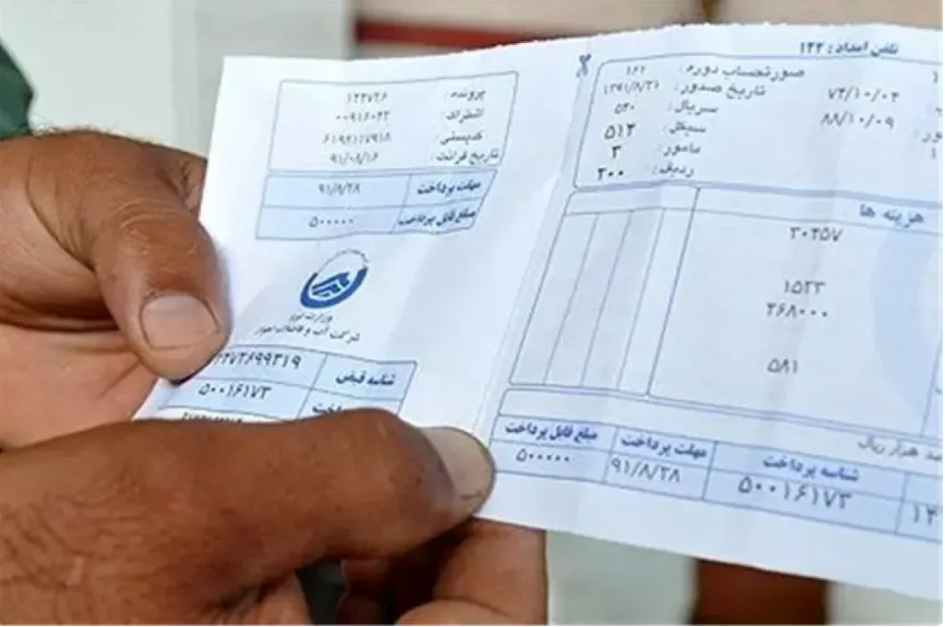 تلفن امداد : ۱۲۲
صورتحساب دوره : ۱۶۲
تاریخ صدور : ۱۳۹۱/۸/۲۱
۷۴/۱۰/۰۴
سریال : ۵۳۰
۸۸/۱۰/۰۹
سیکل : ۵۱۲
مامور : ۳
ردیف : ۲۰۰
هزینه ها
۳۰۴۵۷
۱۵۲۳
۵۸۱
هزار ریال
شناسه پرداخت
مهلت پرداخت
مبلغ قابل پرداخت
۵۰۰۱۶۱۷۳
۹۱/۸/۲۸
۵۰۰۰۰۰
پرونده : ۱۲۳۷۲۶
اشتراک : ۰۰۹۱۶۰۲۲
کدپستی : ۶۱۹۸۱۱۷۹۱۸
تاریخ قرائت : ۹۱/۰۸/۱۶
مهلت پرداخت ۹۱/۸/۲۸
مبلغ قابل پرداخت ۵۰۰۰۰۰
وزارت نیرو
شرکت آب و فاضلاب اهواز
شناسه قبض
۵۰۰۱۶۱۷۳